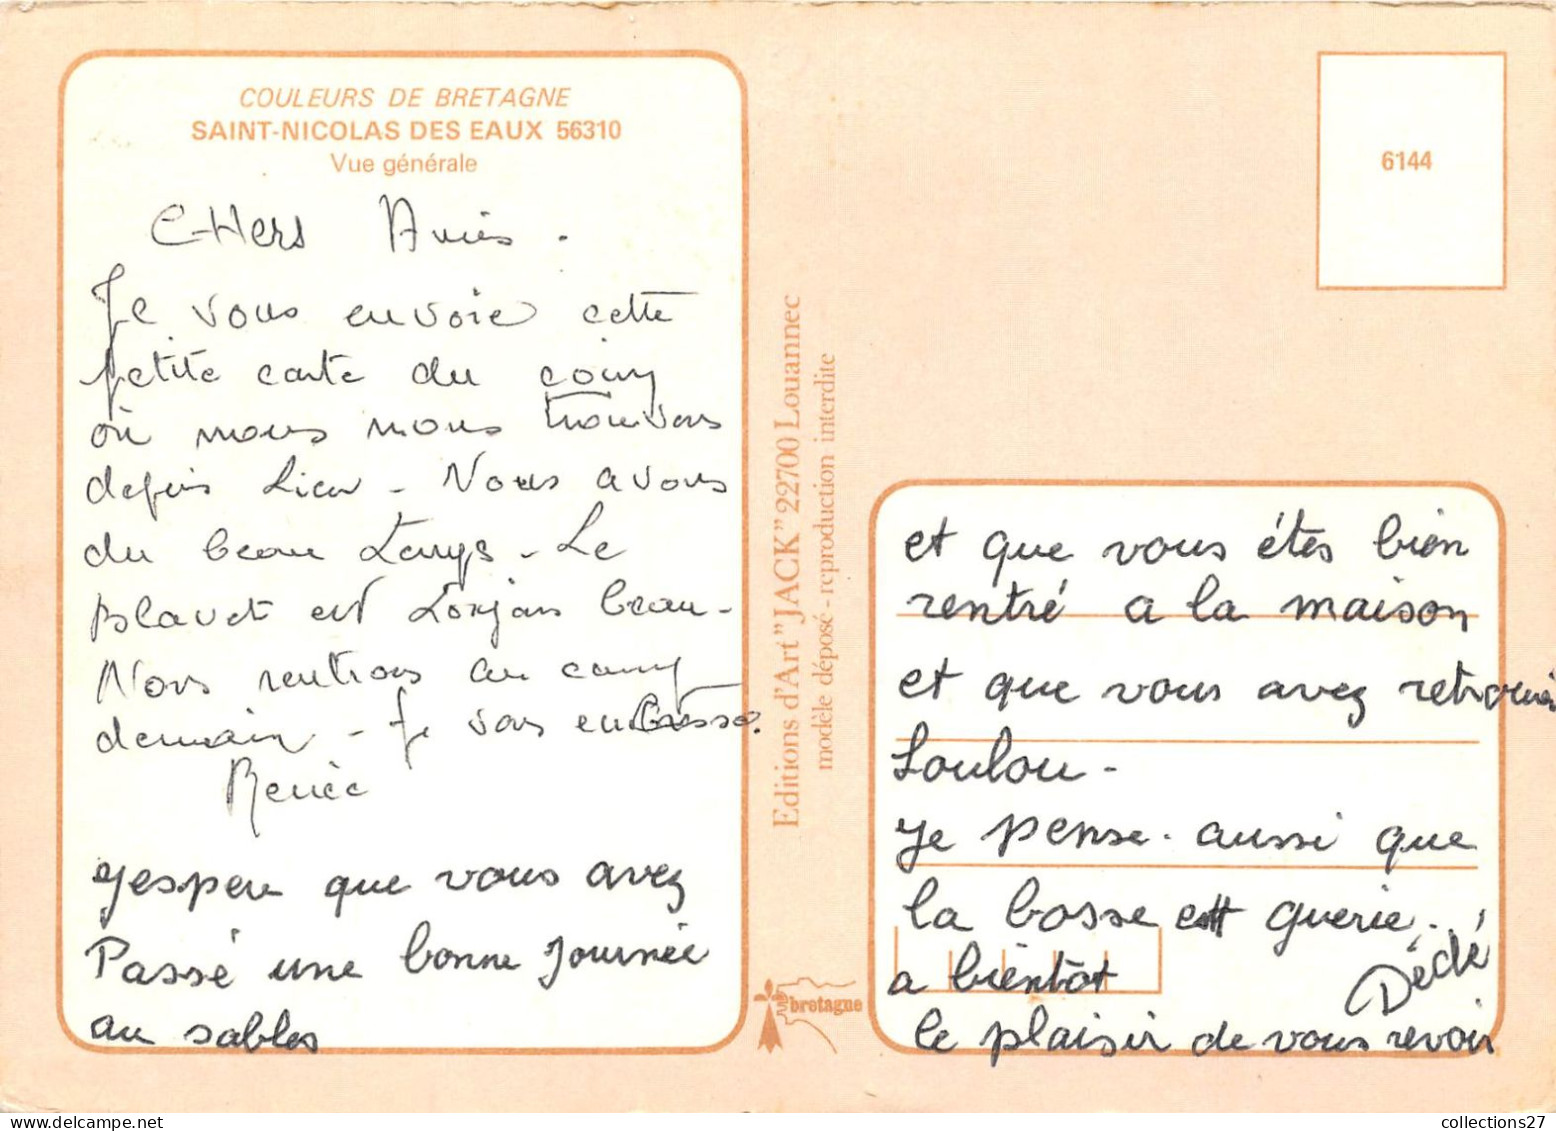 COULEURS DE BRETAGNE
SAINT-NICOLAS DES EAUX 56310
Vue générale
CHers Amis.
Je vous envoie cette
petite carte du coin
où nous nous trouvons
depuis - Nous avons
du beau temps - Le
Blavet est toujours beau -
Nous rentrons au camp
demain - Je vous embrasse.
Renée
jespere que vous avez
Passé une bonne journée
au sables
Editions d'Art "JACK" 22700 Louannec
modèle déposé - reproduction interdite
bretagne
6144
et que vous étes bien
rentré a la maison
et que vous avez retrouvés
Loulou -
je pense. aussi que
la bosse est guerie.
a bientôt Dédé
le plaisir de vous revoir
collections27